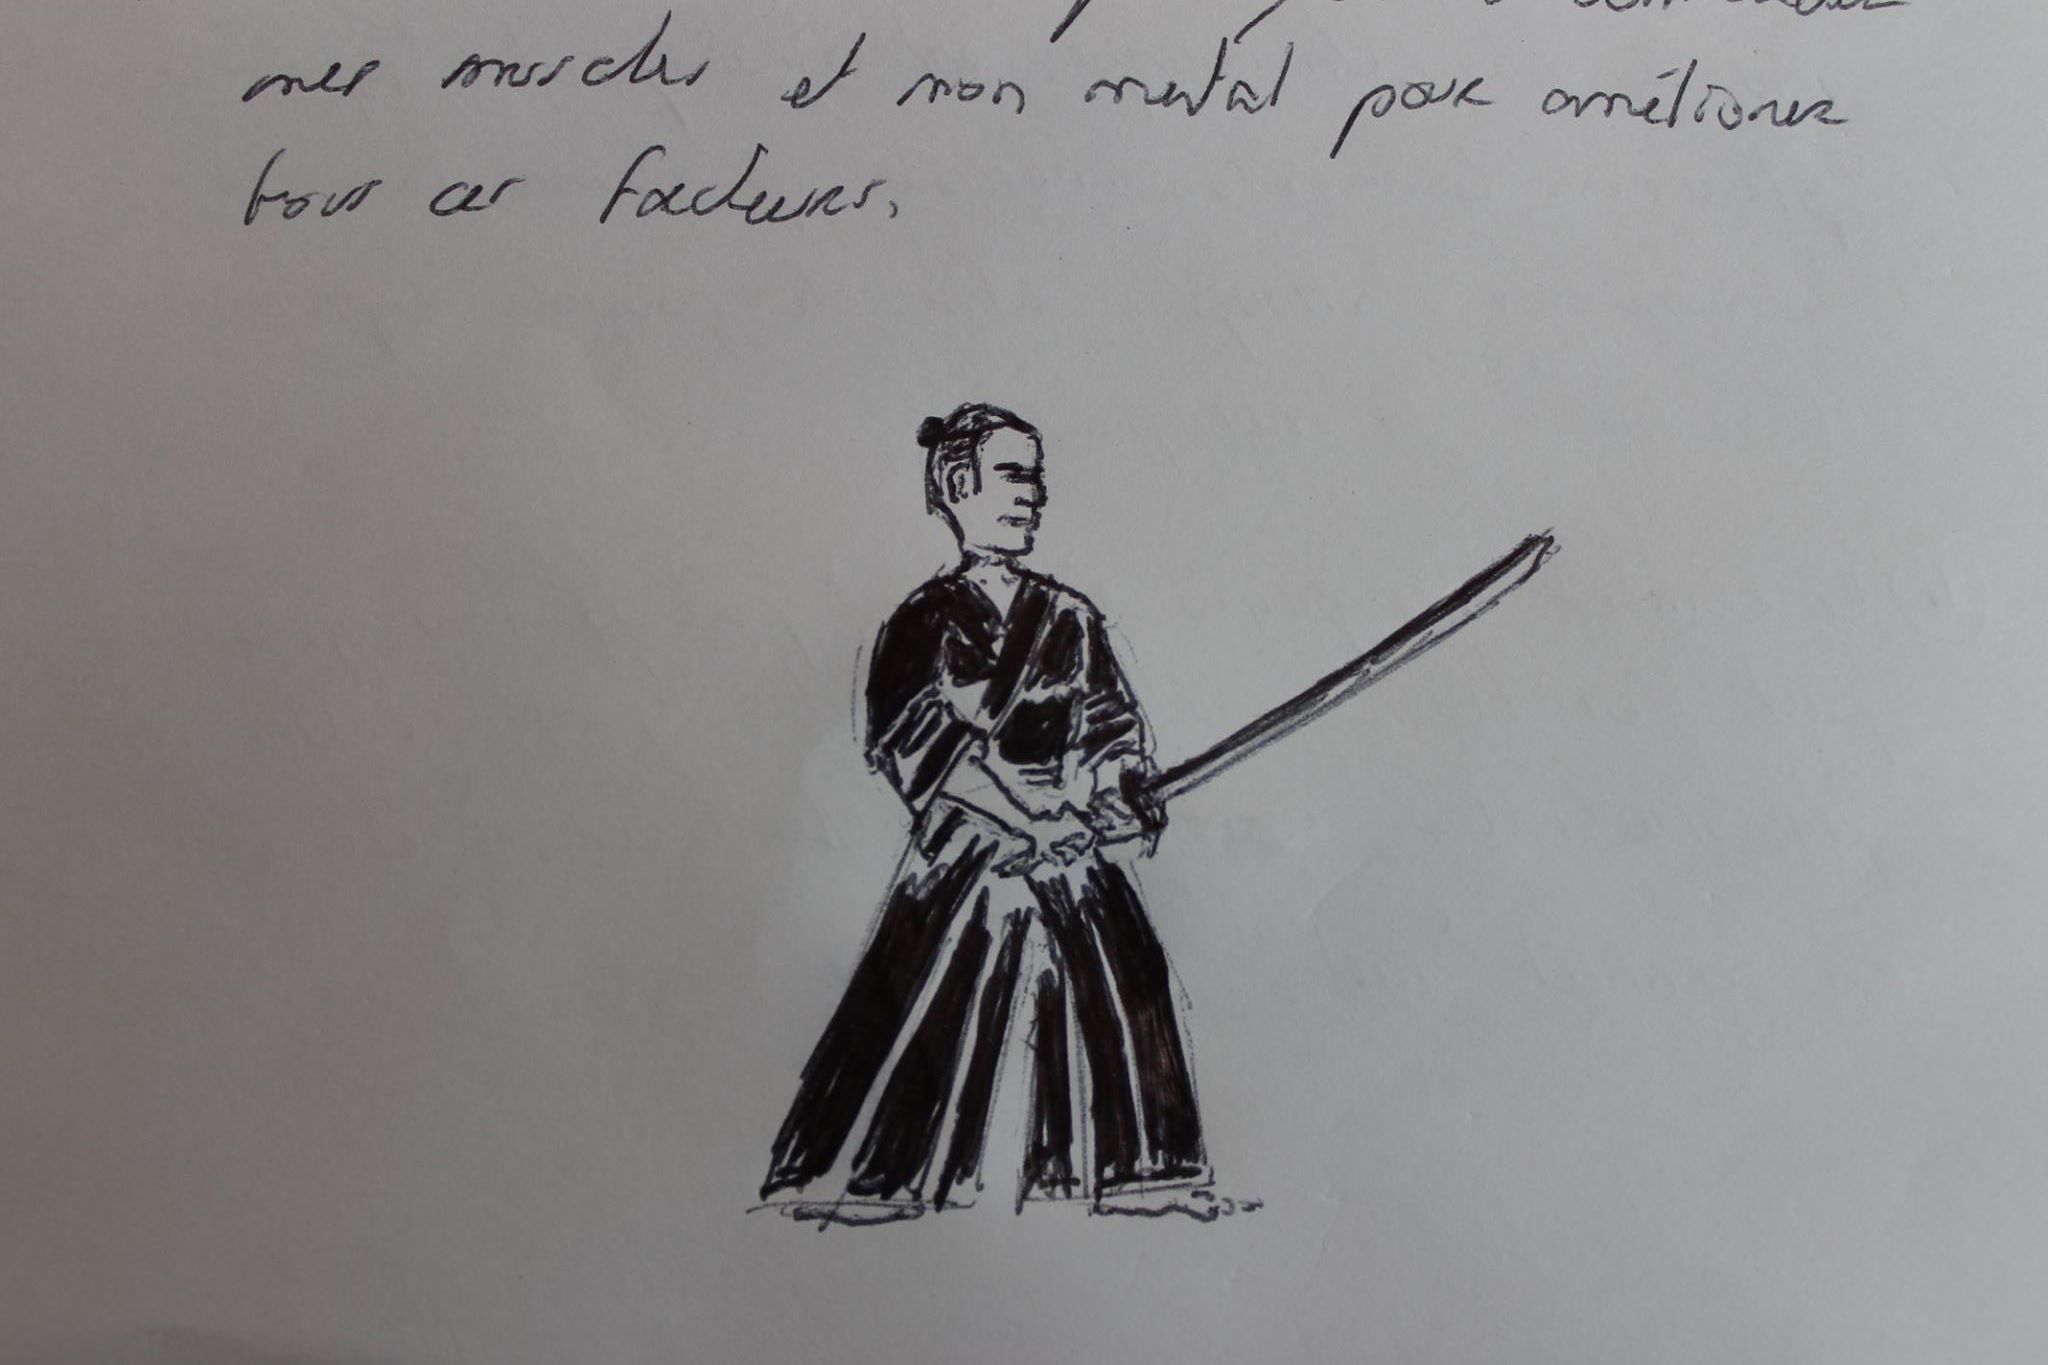 mes muscles et mon mental pour améliorer
tous ces facteurs.